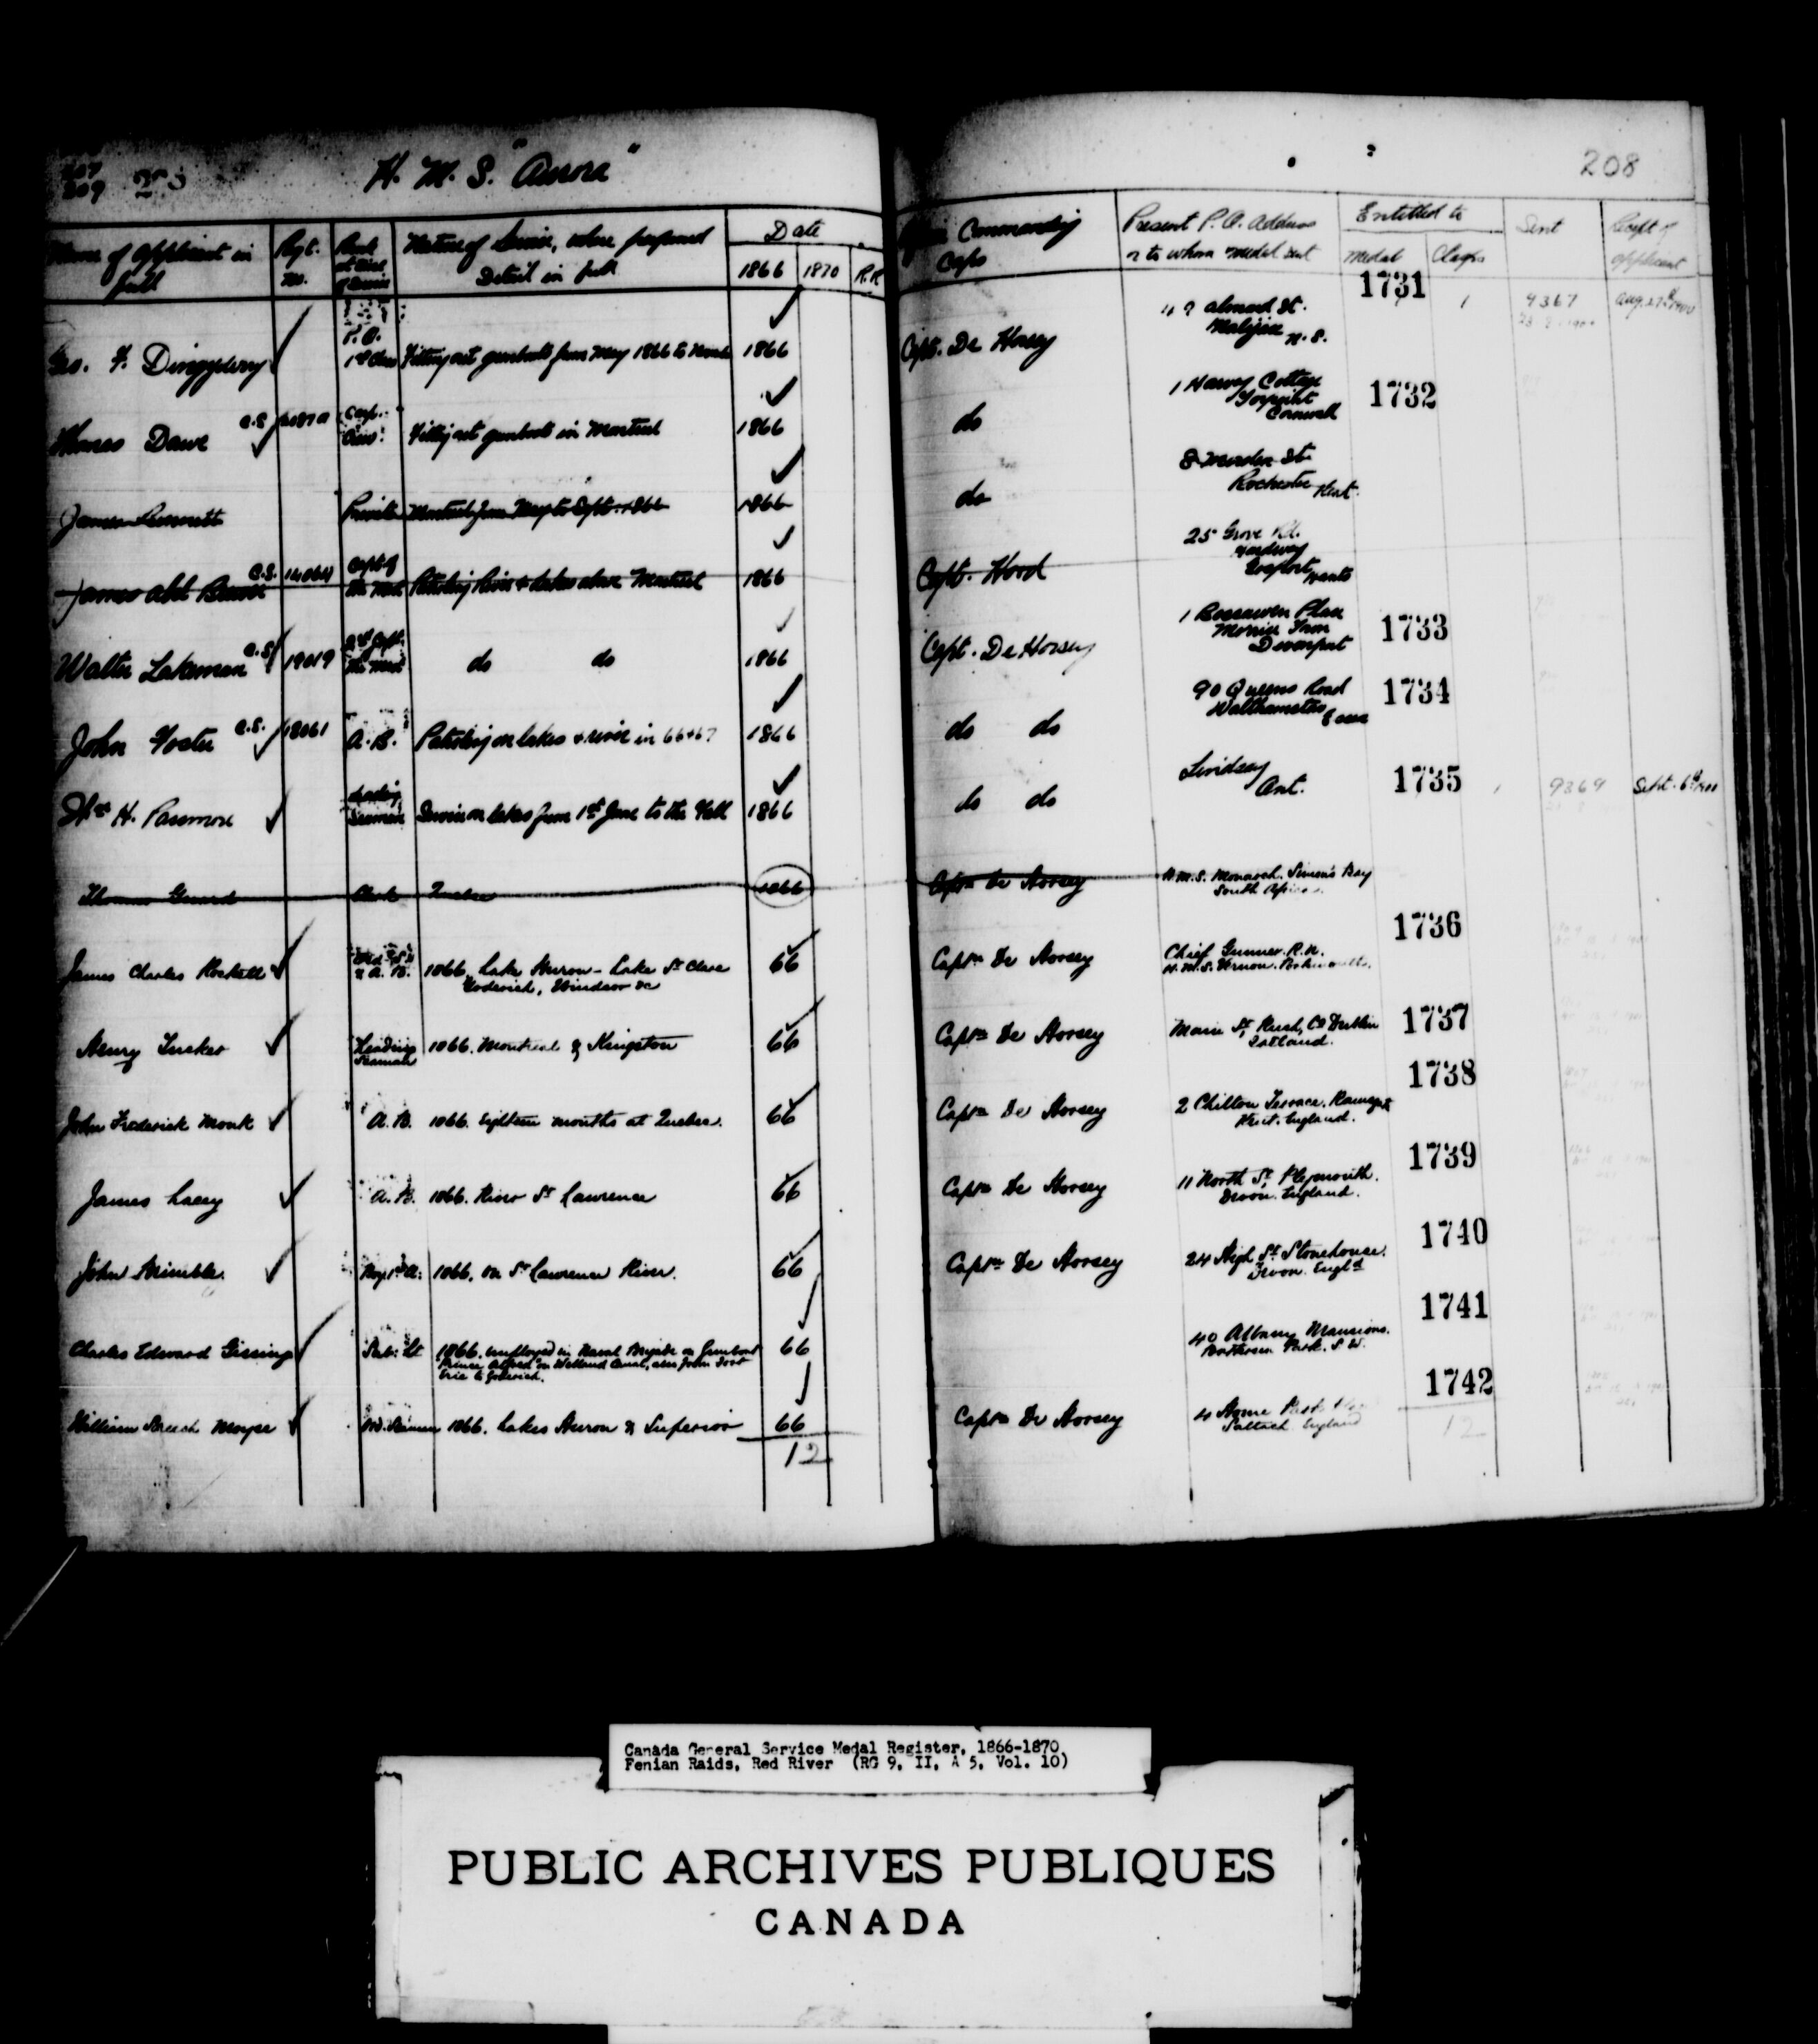 207
209
H. M. S. "Aurora"
208
Name of applicant in full
Regt. no.
Rank at time of Service
Nature of Service, where performed
Detail in full
Date
1866 1870 R.R
Commanding Corps
Present P. O. Address
or to whom medal sent
Entitled to
Medal Clasps
Sent
Recpt of applicant
P. O.
1st Class Fitting out gunboats from May 1866 to 1866
Capt. De Horsey
Halifax N. S.
1731
1
9367
Aug. 27th 1900
Thomas Dawe C.S.
Fitting out gunboats in Montreal 1866
do
1 Harvey Cottage
Torpoint
Cornwall
1732
James
Private Montreal from May to Sept. 1866 1866
do
8 St.
Rochester Kent.
James Abl C.S. 14064
Capt of the Mast Patroling River & lakes above Montreal 1866
Capt. Hood
25 Grove Rd.
Hardway
Gosport Hants
Walter Lakeman C.S. 19019
2nd Capt. the Mast do do 1866
Capt. De Horsey
1 Boscawen Place
Morice Town
Devonport
1733
John Foster C.S. 18061
A. B. Patroling on lakes & river in 66+67 1866
do do
90 Queens Road
Walthamstow Essex
1734
Wm H. Passmore
Leading Seaman Service on lakes from 1st June to the Fall 1866
do do
Lindsay
Ont.
1735
9369
Sept. 6th 1900
Thomas Guard Clerk Quebec 1866
Captn De Horsey
H.M.S. Monarch. Simon's Bay
South Africa.
James Charles
& A. B. 1866, Lake Huron - Lake St Clare
Goderich, Windsor &c
66
Captn De Horsey
Chief Gunner. R.N.
H.M.S. Vernon. Portsmouth.
1736
Henry Tucker
Leading Seaman 1866. Montreal & Kingston 66
Captn De Horsey
Main St, Rush, Co Dublin
Ireland.
1737
John Frederick Monk A.B. 1866. Eighteen months at Quebec. 66
Captn De Horsey
2 Chilton Terrace. Ramsgate
Kent. England.
1738
James Lacey A.B. 1866. River St Lawrence 66
Captn De Horsey
11 North St, Plymouth.
Devon. England.
1739
John Boy 1st Cl. 1866. On St Lawrence River. 66
Captn De Horsey
24 High St. Stonehouse.
Devon. Engld
1740
Charles Edward Gissing Sub: Lt 1866. employed in Naval Brigade on Gunboat
"Prince Alfred" on Welland Canal, also from Fort
Erie to Goderich.
66
40 Albany Mansions.
Battersea Park. S.W.
1741
William Moyse Ord. Seaman 1866. Lakes Huron & Superior 66
Captn De Horsey
Saltash England
1742
12
12
Canada General Service Medal Register, 1866-1870
Fenian Raids, Red River (RG 9, II, A 5, Vol. 10)
PUBLIC ARCHIVES PUBLIQUES
CANADA